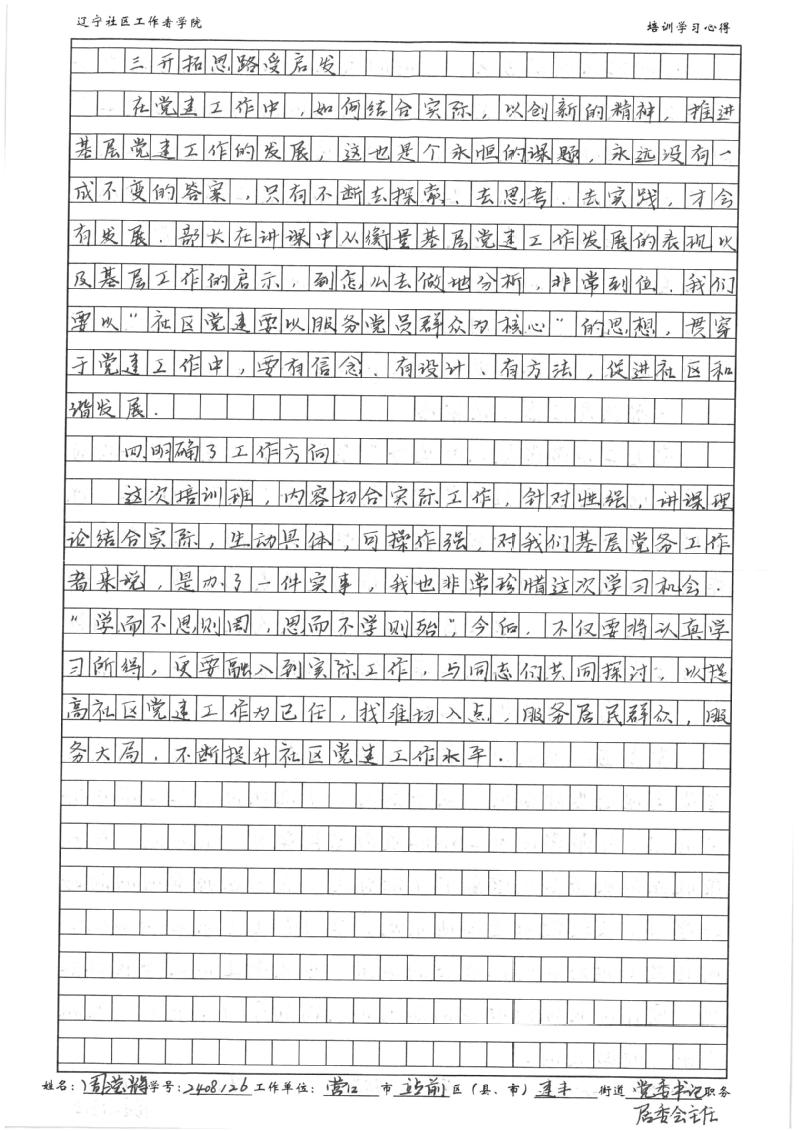 辽宁社区工作者学院 培训学习心得
三开拓思路受启发
在党建工作中，如何结合实际，以创新的精神，推进
基层党建工作的发展，这也是个永恒的课题，永远没有一
成不变的答案，只有不断去探索、去思考、去实践，才会
有发展．部长在讲课中从衡量基层党建工作发展的表现以
及基层工作的启示，到怎么去做地分析，非常到位．我们
要以“社区党建要以服务党员群众为核心”的思想，贯穿
于党建工作中，要有信念、有设计、有方法，促进社区和
谐发展．
四．明确了工作方向
这次培训班，内容切合实际工作，针对性强，讲课理
论结合实际，生动具体，可操作强，对我们基层党务工作
者来说，是办了一件实事，我也非常珍惜这次学习机会．
“学而不思则罔，思而不学则殆”，今后，不仅要将认真学
习所得，更要融入到实际工作，与同志们共同探讨，以提
高社区党建工作为己任，找准切入点，服务居民群众，服
务大局，不断提升社区党建工作水平．
姓名：周 学号：2408126 工作单位：营口 市 站前 区（县、市） 建丰 街道 党委书记 职务
居委会主任